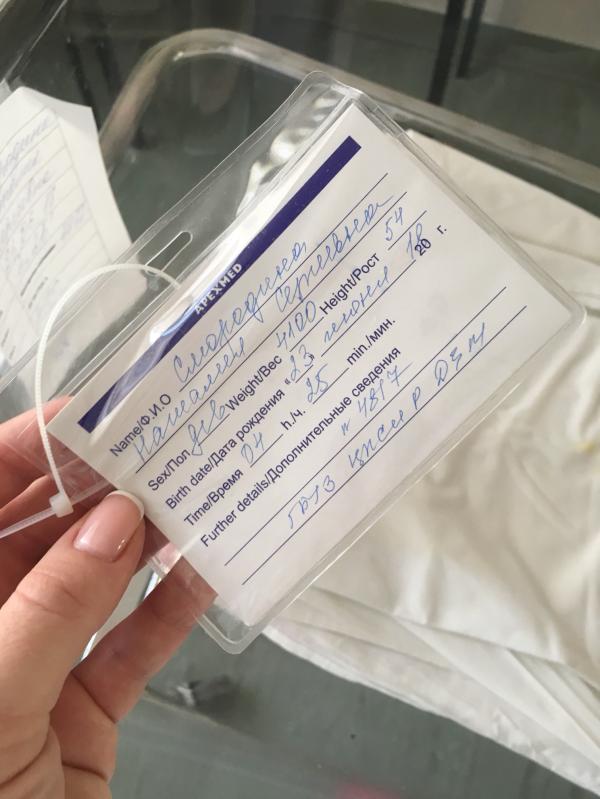 APEXMED
Name/Ф.И.О Смородина
Наталия Сергеевна
Sex/Пол дев Weight/Вес 4100 Height/Рост 54
Birth date/Дата рождения "23" июня 2018 г.
Time/Время 04 h./ч. 25 min./мин.
Further details/Дополнительные сведения
N 4817
ГБУЗ ЦПСиР ДЗМ